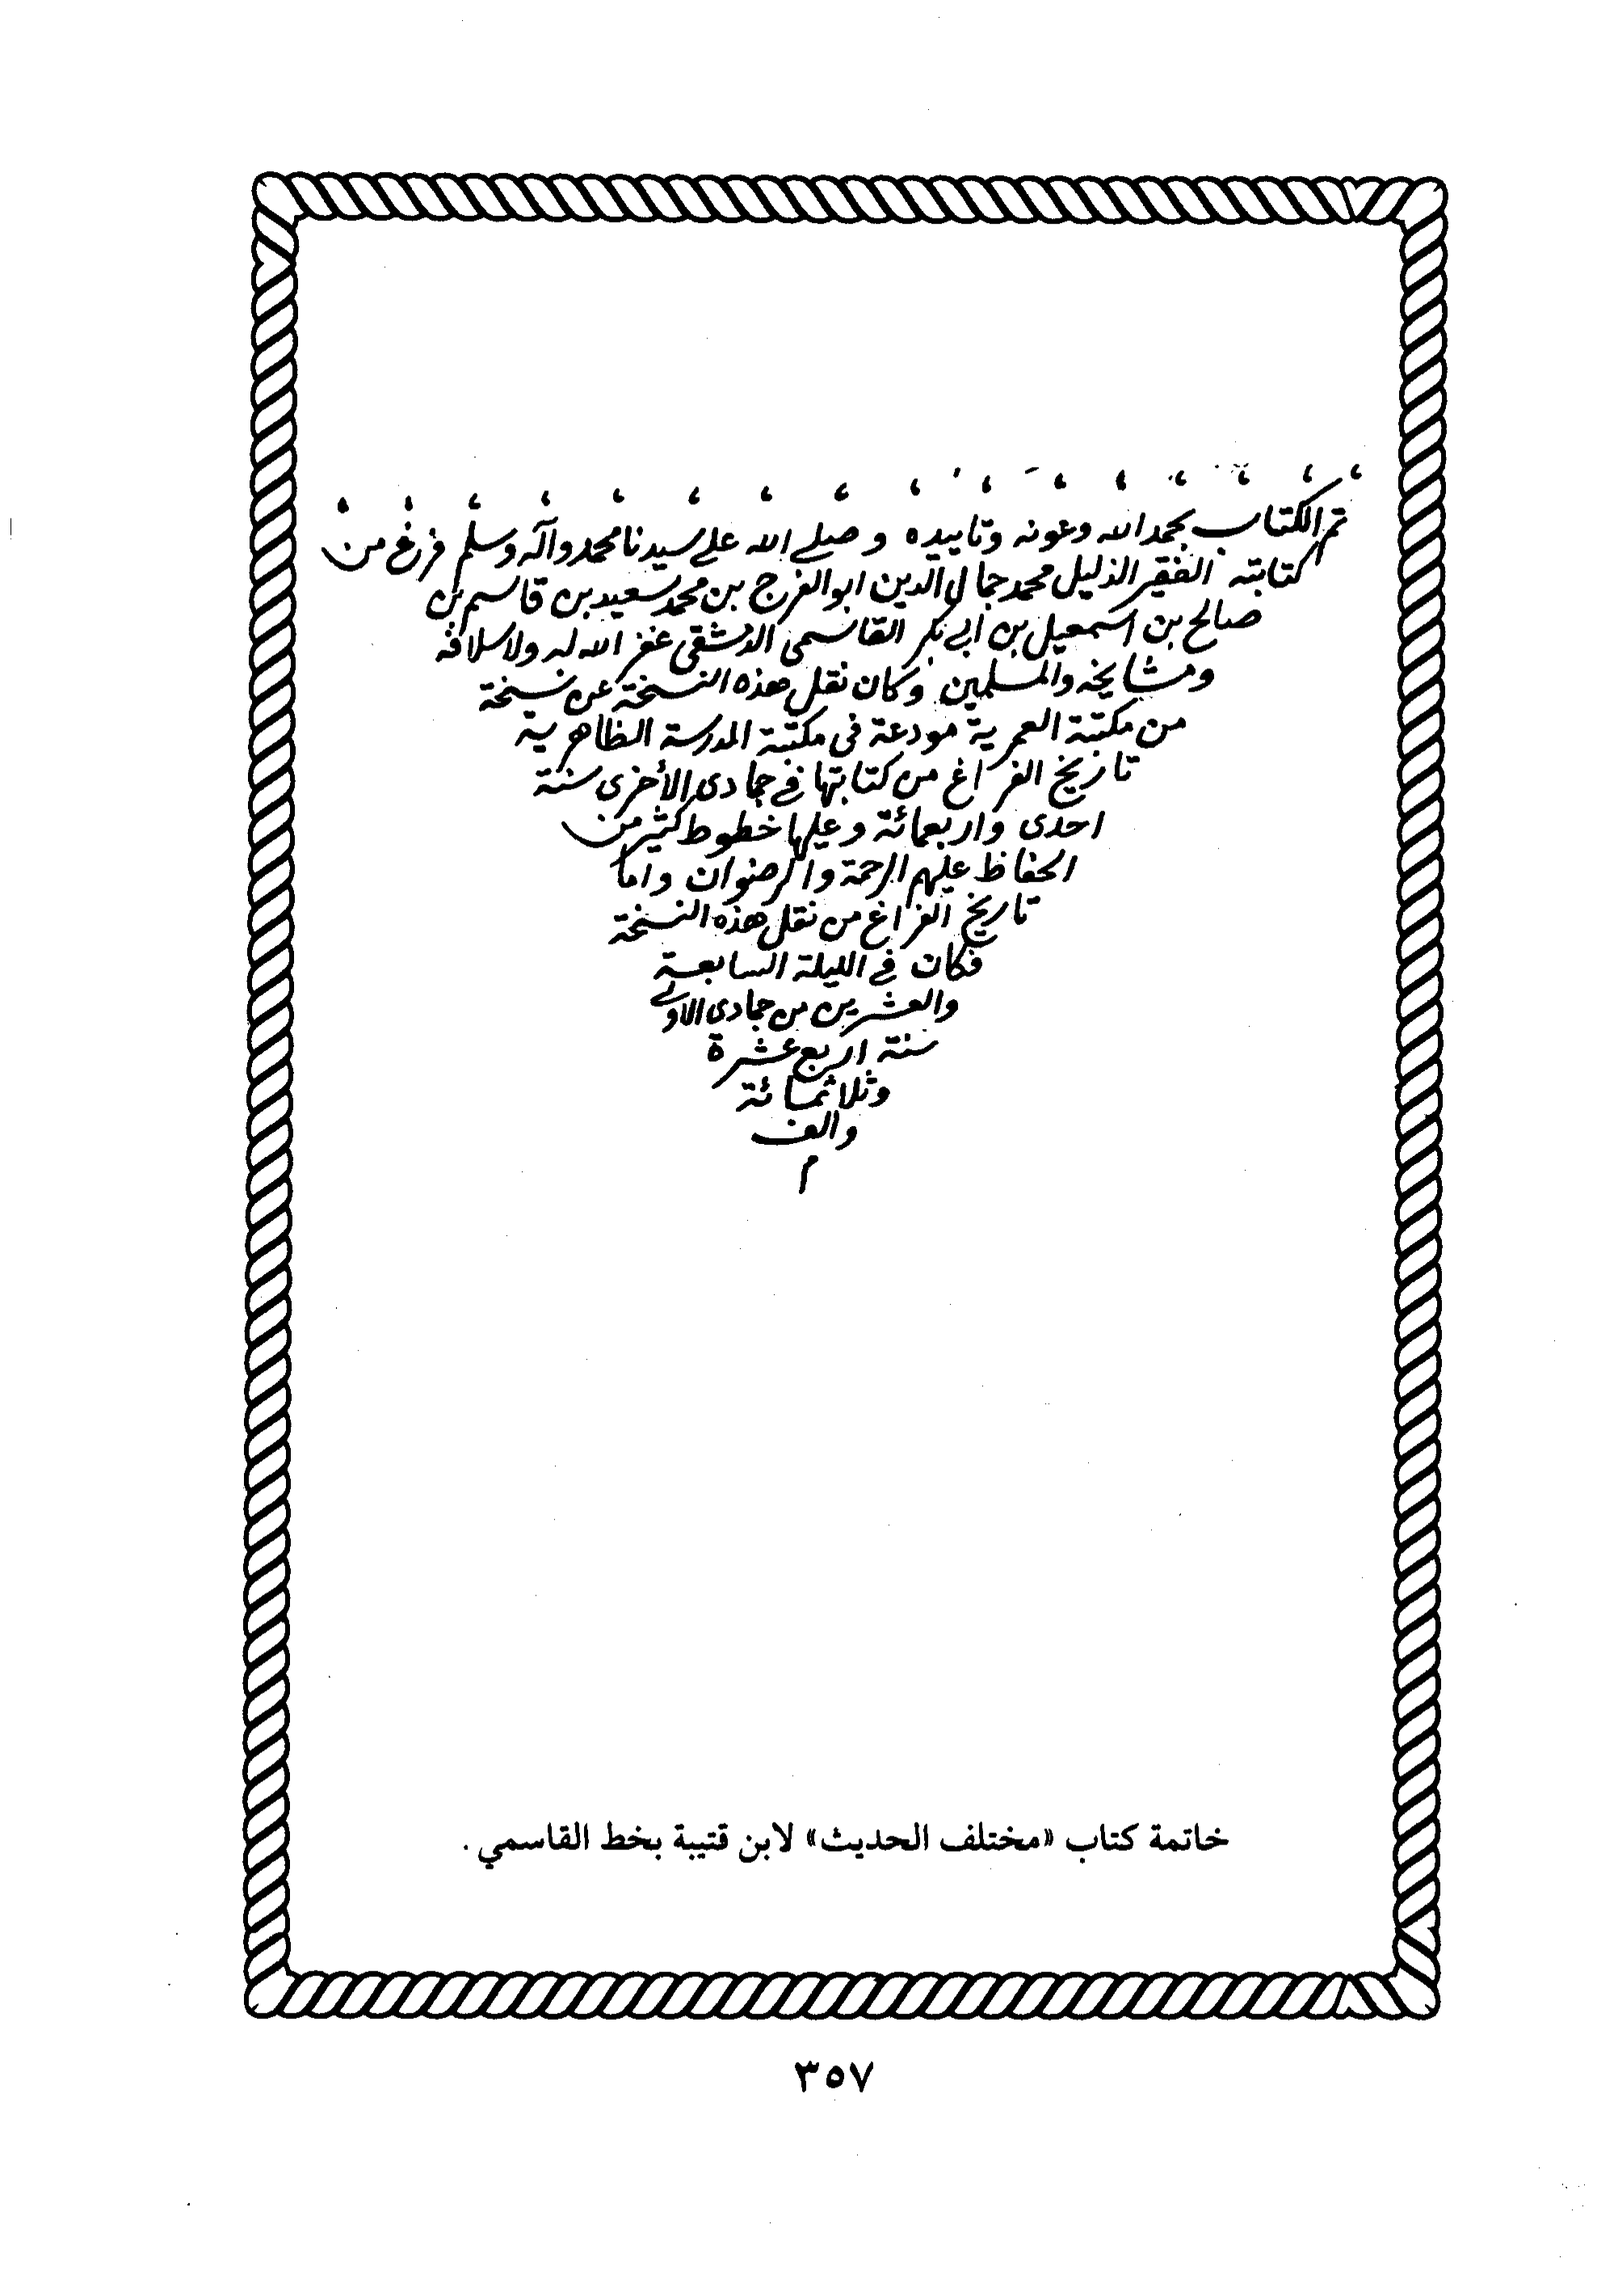 تم الكتاب بحمد الله وعونه وتاييده وصلى الله على سيدنا محمد وآله وسلم فرغ من
كتابته الفقير الذليل محمد جمال الدين ابو الفرج بن محمد سعيد بن قاسم بن
صالح بن اسمعيل بن أبي بكر القاسمي الدمشقي غفر الله له ولاسلافه
ومشايخه والمسلمين وكان نقل هذه النسخة عن نسخة
من مكتبة العمرية مودعة في مكتبة المدرسة الظاهرية
تاريخ الفراغ من كتابتها في جمادى الأخرى سنة
احدى واربعمائة وعليها خطوط كثير من
الحفاظ عليهم الرحمة والرضوان واما
تاريخ الفراغ من نقل هذه النسخة
فكان في الليلة السابعة
والعشرين من جمادى الاولى
سنة اربع عشرة
وثلاثمائة
والف
م
خاتمة كتاب «مختلف الحديث» لابن قتيبة بخط القاسمي .
٣٥٧